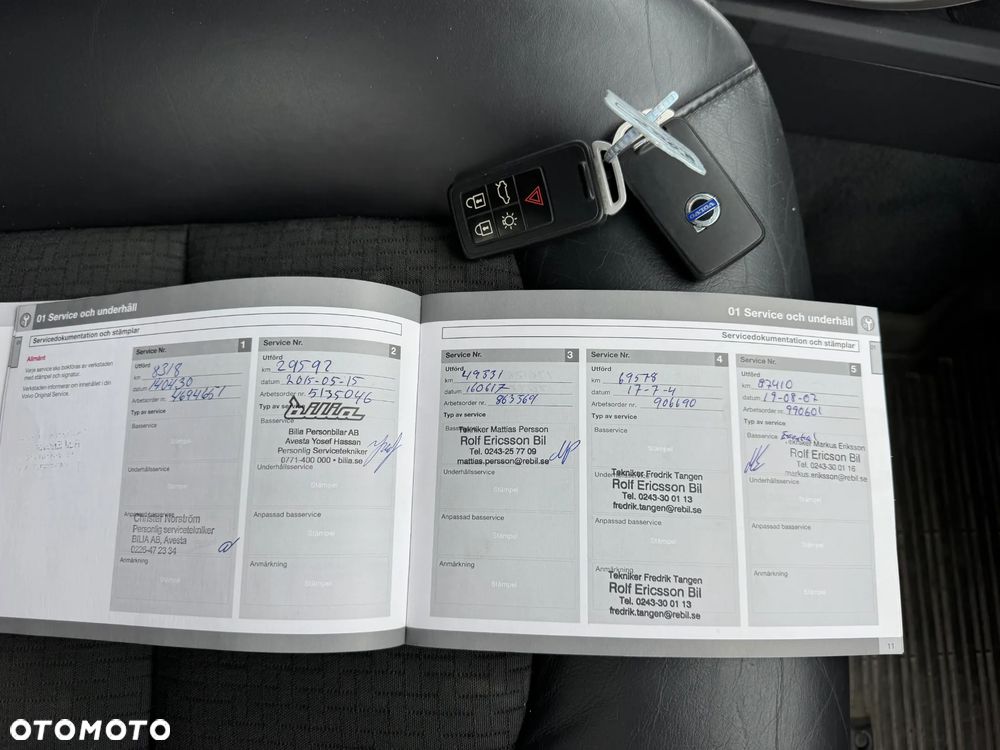 VOLVO
01 Service och underhåll
Servicedokumentation och stämplar
Allmänt
Varje service ska bokföras av verkstaden
med stämpel och signatur.
Verkstaden informerar om innehållet i din
Volvo Original Service.
Service Nr. 1
Utförd
km 8318
datum 140430
Arbetsorder nr. 4694651
Typ av service
Basservice
Stämpel
Underhållsservice
Stämpel
Anpassad basservice
Christer Norström
Personlig servicetekniker
BILIA AB, Avesta
0226-47 23 34
Anmärkning
Stämpel
Service Nr. 2
Utförd
km 29592
datum 2015-05-15
Arbetsorder nr. 5135046
Typ av
bilia
Basservice
Bilia Personbilar AB
Avesta Yosef Hassan
Personlig Servicetekniker
0771-400 000 • bilia.se
Underhållsservice
Stämpel
Anpassad basservice
Stämpel
Anmärkning
Stämpel
01 Service och underhåll
Servicedokumentation och stämplar
Service Nr. 3
Utförd
km 49331
datum 160617
Arbetsorder nr. 863564
Typ av service
Tekniker Mattias Persson
Rolf Ericsson Bil
Tel. 0243-25 77 09
mattias.persson@rebil.se
Underhållsservice
Stämpel
Anpassad basservice
Stämpel
Anmärkning
Stämpel
Service Nr. 4
Utförd
km 69578
datum 17-7-4
Arbetsorder nr. 906690
Typ av service
Basservice
Stämpel
Underhållsservice
Tekniker Fredrik Tangen
Rolf Ericsson Bil
Tel. 0243-30 01 13
fredrik.tangen@rebil.se
Anpassad basservice
Stämpel
Anmärkning
Tekniker Fredrik Tangen
Rolf Ericsson Bil
Tel. 0243-30 01 13
fredrik.tangen@rebil.se
Service Nr. 5
Utförd
km 87410
datum 19-08-07
Arbetsorder nr. 990601
Typ av service
Basservice Essential
Tekniker Markus Eriksson
Rolf Ericsson Bil
Tel. 0243-30 01 16
markus.eriksson@rebil.se
Underhållsservice
Stämpel
Anpassad basservice
Stämpel
Anmärkning
Stämpel
11
OTOMOTO